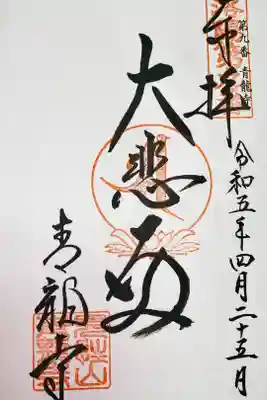 第九番 青龍寺
令和五年四月二十五日
奉拝
大悲殿
青龍寺